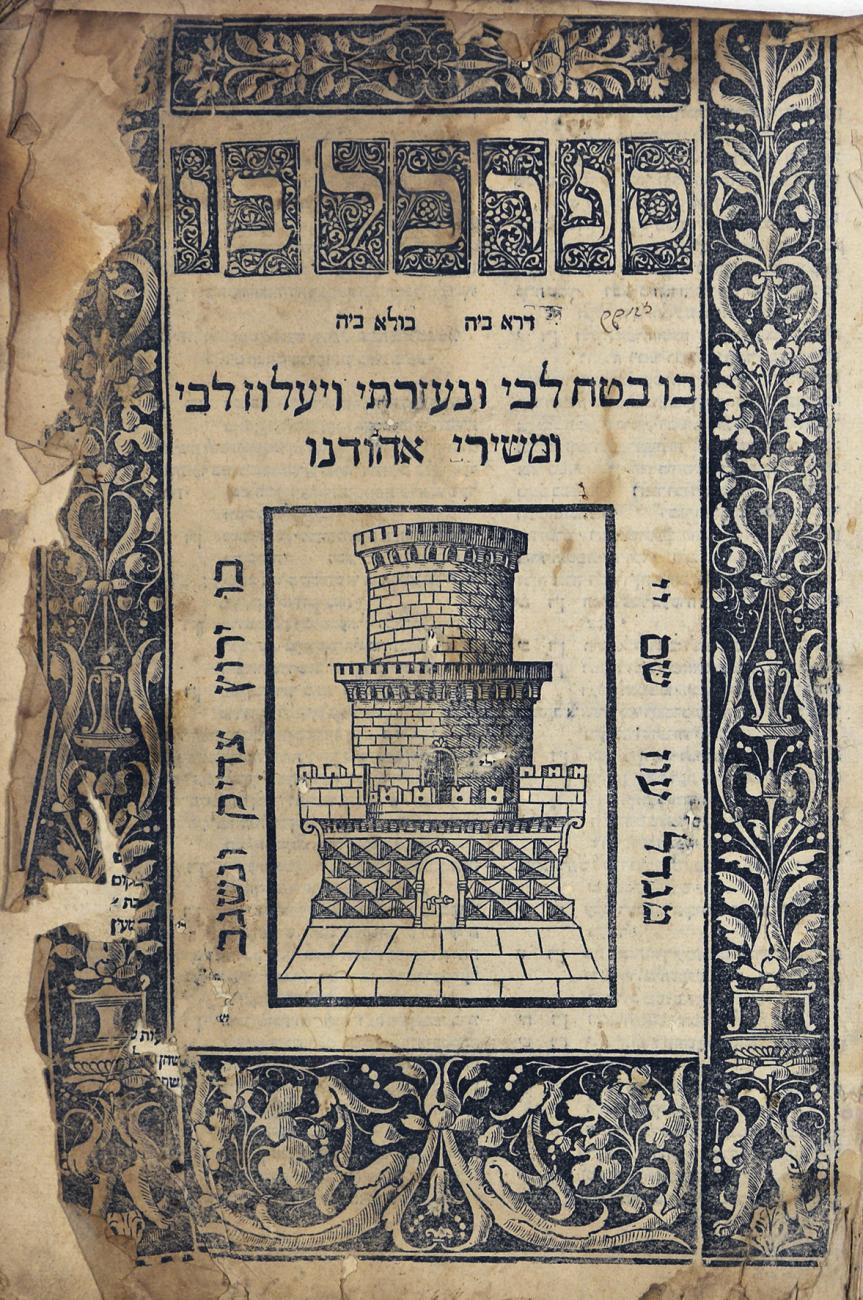 ספר כל בו
דרא ביה כולא ביה
בו בטח לבי ונעזרתי ויעלוז לבי
ומשירי אהודנו
מגדל עוז שם יי
בו ירוץ צדיק ונשגב